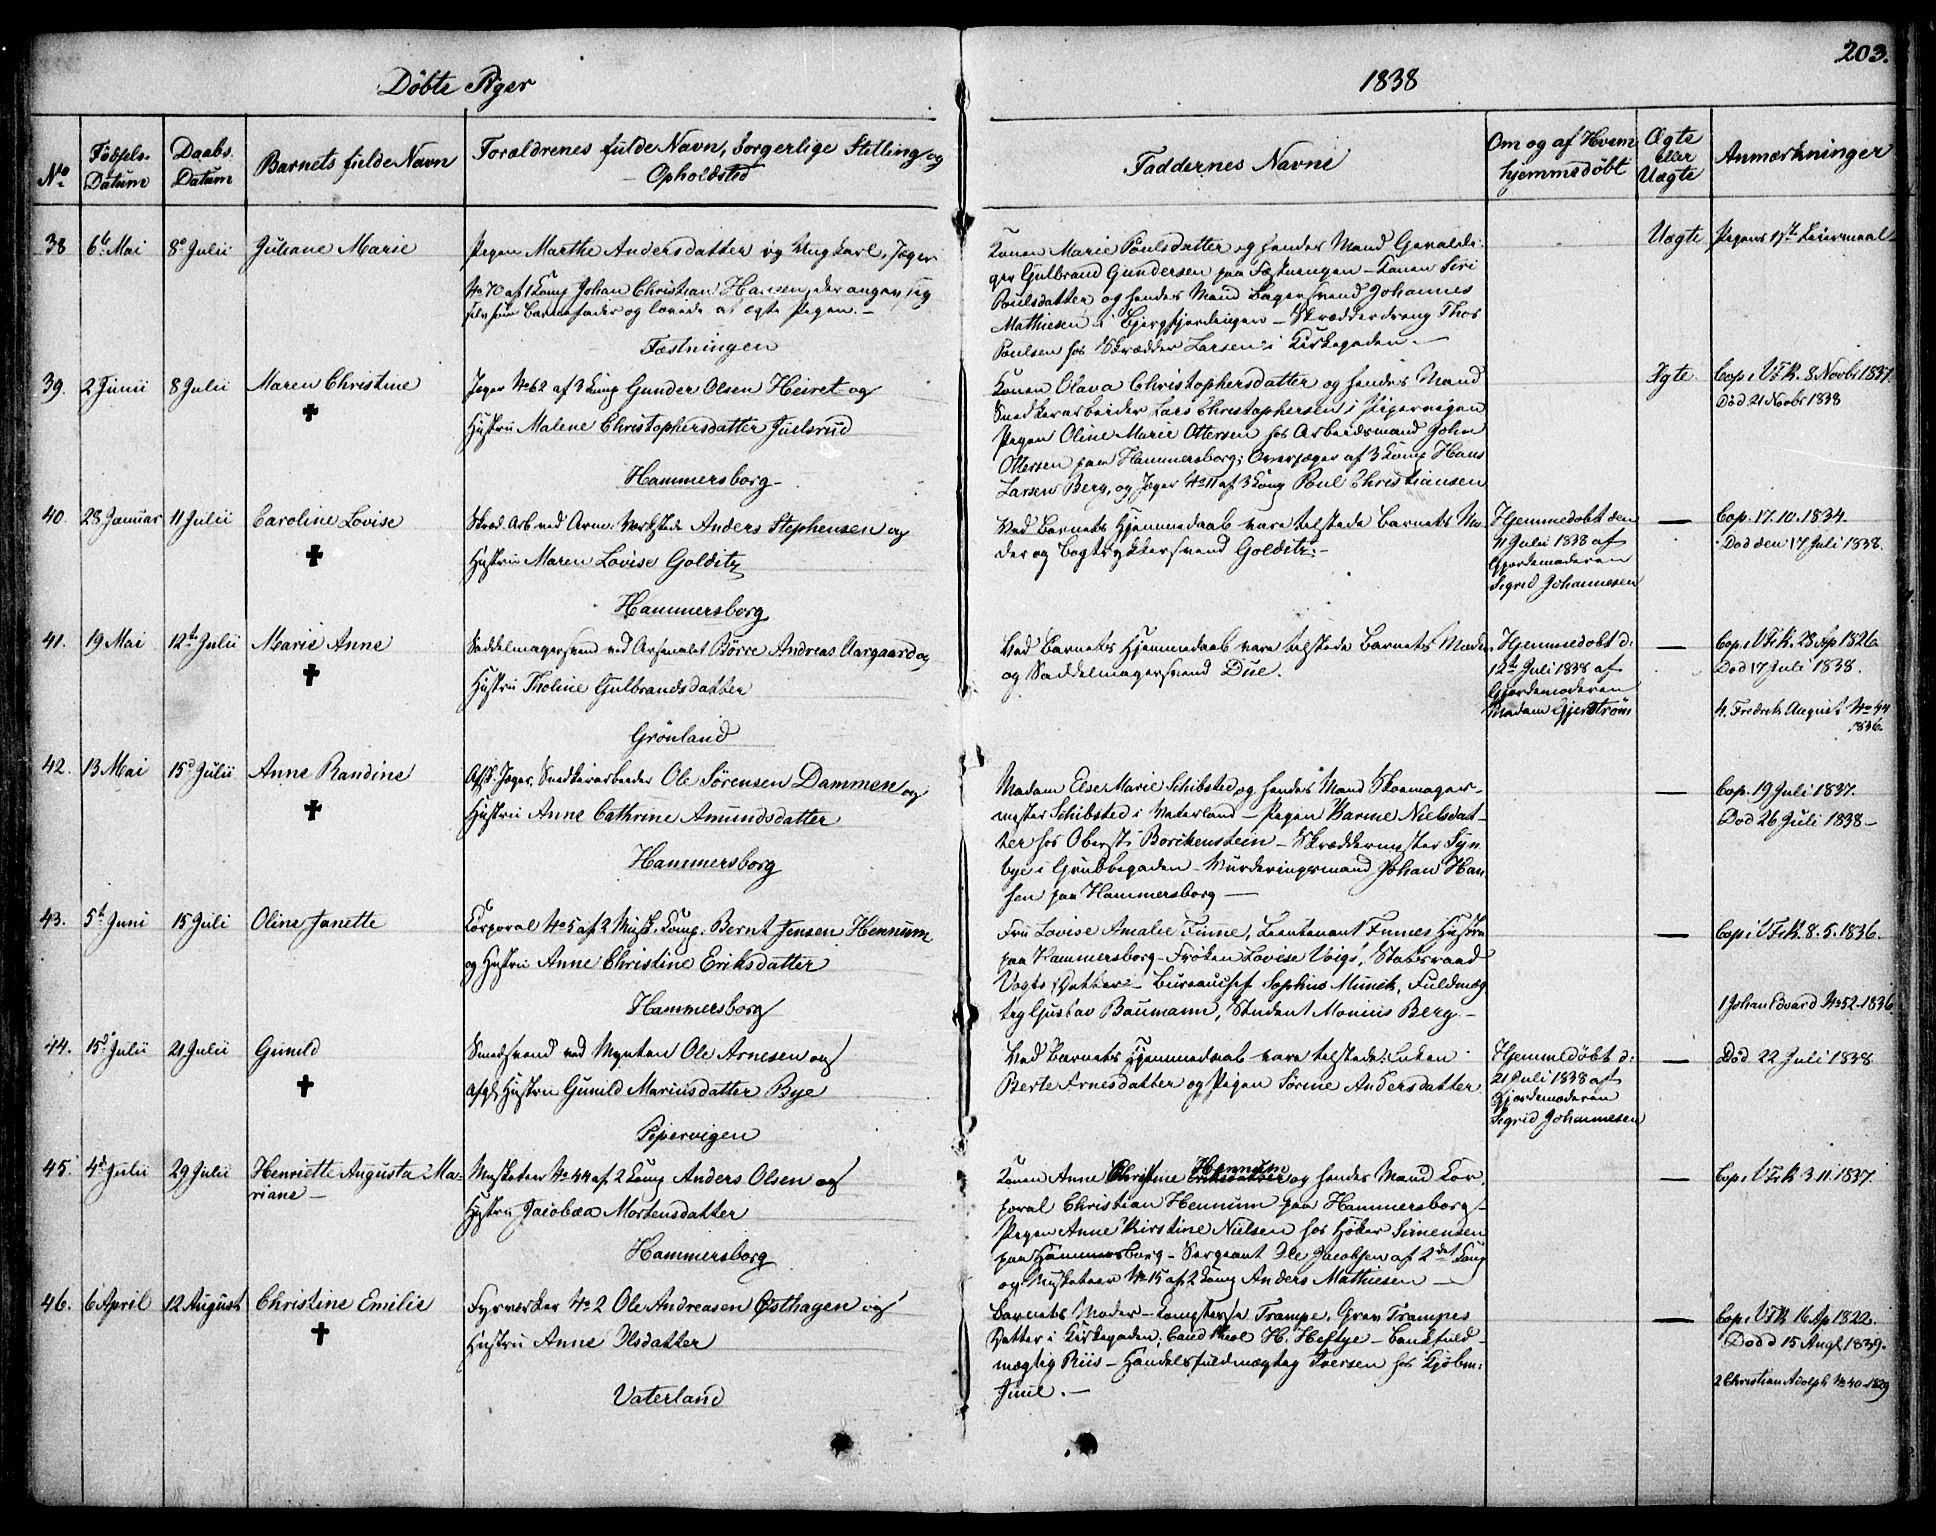 203.
Døbte Piger
1838
No
Fødsels-Datum
Daabs Datum
Barnets fulde Navn
Forældrenes fulde Navn, borgerlige Stilling og Opholdsted
Faddernes Navne
Om og af Hvem hjemmedøbt
Ægte eller Uægte
Anmærkninger
38 6te Mai 8de Julii Juliane Marie
Pigen Marthe Andersdatter og Ungkarl, Jæger
No 70 af 1 Komp Johan Christian Hansen, der angav sig
selv som Barnefader og lovede at ægte Pigen. –
Fæstningen
Konen Marie Poulsdatter og hendes Mand Gevaldi-
ger Gulbrand Gundersen paa Fæstningen – Konen Siri
Poulsdatter og hendes Mand Bagersvend Johannes
Mathiesen i Bjergfjerdingen – Skrædderdreng Thor
Poulsen hos Skrædder Larsen i Kirkegaden. –
Uægte
Pigens 1ste Leiermaal
39. 2 Junii 8 Julii Maren Christine
Jæger No 62 af 3 Komp Gunder Olsen Heiret og
Hustru Malene Christophersdatter Juelsrud
Hammersborg
Konen Olava Christophersdatter og hendes Mand
Snedkerarbeider Lars Christophersen i Pipervigen
Pigen Oline Marie Ottersen hos Arbeidsmand John
Ottersen paa Hammersborg; Overjæger af 3 Komp Hans
Larsen Berg, og Jæger No 11 af 3 Komp Poul Christiansen
Ægte
Cop. i V.F.K. 8 Novbr 1837.
Død 21 Novbr 1838
40. 28 Januar 11 Julii Caroline Lovise
Arb ved Arm: Værkstede Anders Stephensen og
Hustru Maren Lovise Golditz
Hammersborg
Ved Barnets Hjemmedaab vare tilstede Barnets Mo-
der og Bogtrykkersvend Golditz. –
Hjemmedøbt den
11 Julii 1838 af
Gjordemoderen
Sigrid Johannesen
—
Cop. 17.10.1834.
Død den 17 Juli 1838.
41. 19 Mai 12te Julii Marie Anne
Saddelmagersvend ved Arsenalet Børre Andreas Aargaard og
Hustru Tholine Gulbrandsdatter
Grønland
Ved Barnets Hjemmedaab vare tilstede Barnets Moder
og Saddelmagersvend Due.
Hjemmedøbt d:
12te Juli 1838 af
Gjordemoderen
Madam Gjerstrøm
—
Cop. i V.F.K. 28 Ap 1826
Død 17 Juli 1838.
4. Fredrik August No 44
1836.
42. 13 Mai 15d Julii Anne Randine
Afsk. Jæger, Snedkerarbeider Ole Sørensen Dammen og
Hustru Anne Cathrine Amundsdatter
Hammersborg
Madam Else Marie Schibsted og hendes Mand Skomager-
mester Schibsted i Vaterland – Pigen Karine Nielsdat-
ter hos Oberst Borckenstein – Skræddermester Syn-
bye i Grubbegaden – Vurderingsmand Johan Han-
sen paa Hammersborg –
—
Cop. 19 Juli 1837.
Død 26 Juli 1838 –
43. 5t Juni 15 Juli Oline Janette
Corporal No 5 af 2 Musk. Komp. Bernt Jensen Hennum
og Hustru Anne Christine Eriksdatter
Hammersborg
Fru Lovise Amalie Finne, Lieutenant Finnes Hustru
paa Hammersborg – Frøken Lovise Voigt, Statsraad
Vogts Datter – Bureauchef Sophus Munck, Fuldmæg-
tig Gustav Baumann, Student Monius Berg –
—
Cop. i V.F.K. 8.5.1836.
1 Johan Edvard No 52 1836
44. 15d Julii 21 Julii Gunild
Smedsvend ved Mynten Ole Arnesen og
Afgd. Hustru Gunild Mariusdatter Bye
Pipervigen
Ved Barnets Hjemmedaab vare tilstede: Enken
Berte Arnesdatter og Pigen Sørine Andersdatter
Hjemmedøbt d:
21 Juli 1838 af
Gjordemoderen
Sigrid Johannesen
—
Død 22 Juli 1838
45. 4d Julii 29 Julii Henriette Augusta Ma-
riane –
Musketeer No 44 af 2 Komp Anders Olsen og
Hustru Jacobæa Mortensdatter
Hammersborg
Konen Anne Christine Hennum Eriksdatter og hendes Mand Cor-
poral Christian Hennum paa Hammersborg –
Pigen Anne Kirstine Nielsen hos Høker Simensen
paa Hammersborg – Sergeant Ole Jacobsen af 2det Komp
og Musketeer No 15 af 2 Komp Anders Mathiesen –
—
Cop. i V.F.K. 3.11.1837.
46. 6 April 12 August Christine Emilie
Fyrverker No 2 Ole Andreasen Østhagen og
Hustru Anne Olsdatter
Vaterland
Barnets Moder – Comtesse Trampe, Grev Trampes
Datter i Kirkegaden, Cand theol H. Heftye – Bankfuld-
mægtig Riis – Handelsfuldmægtig Iversen hos Kjøbm:
Juul. –
—
Cop. i V.F.K. 16 Ap 1822.
Død d 15 Augt 1839.
2 Christian Adolph No 40 1829